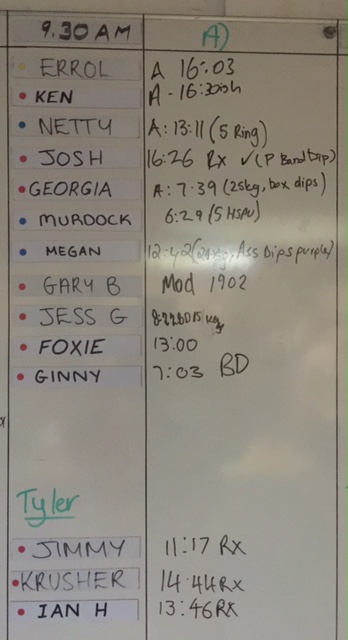 9.30 AM A)
ERROL A 16:03
KEN A - 16:30ish
NETTY A: 13:11 (5 Ring)
JOSH 16:26 Rx ✓ (P Band Dip)
GEORGIA A: 7:39 (25kg, box dips)
MURDOCK 6:29 (5 HSPU)
MEGAN 12:42 ( Ass Dips purple)
GARY B Mod 1902
JESS G kg
FOXIE 13:00
GINNY 7:03 BD
Tyler
JIMMY 11:17 RX
KRUSHER 14:44 RX
IAN H 13:46 RX